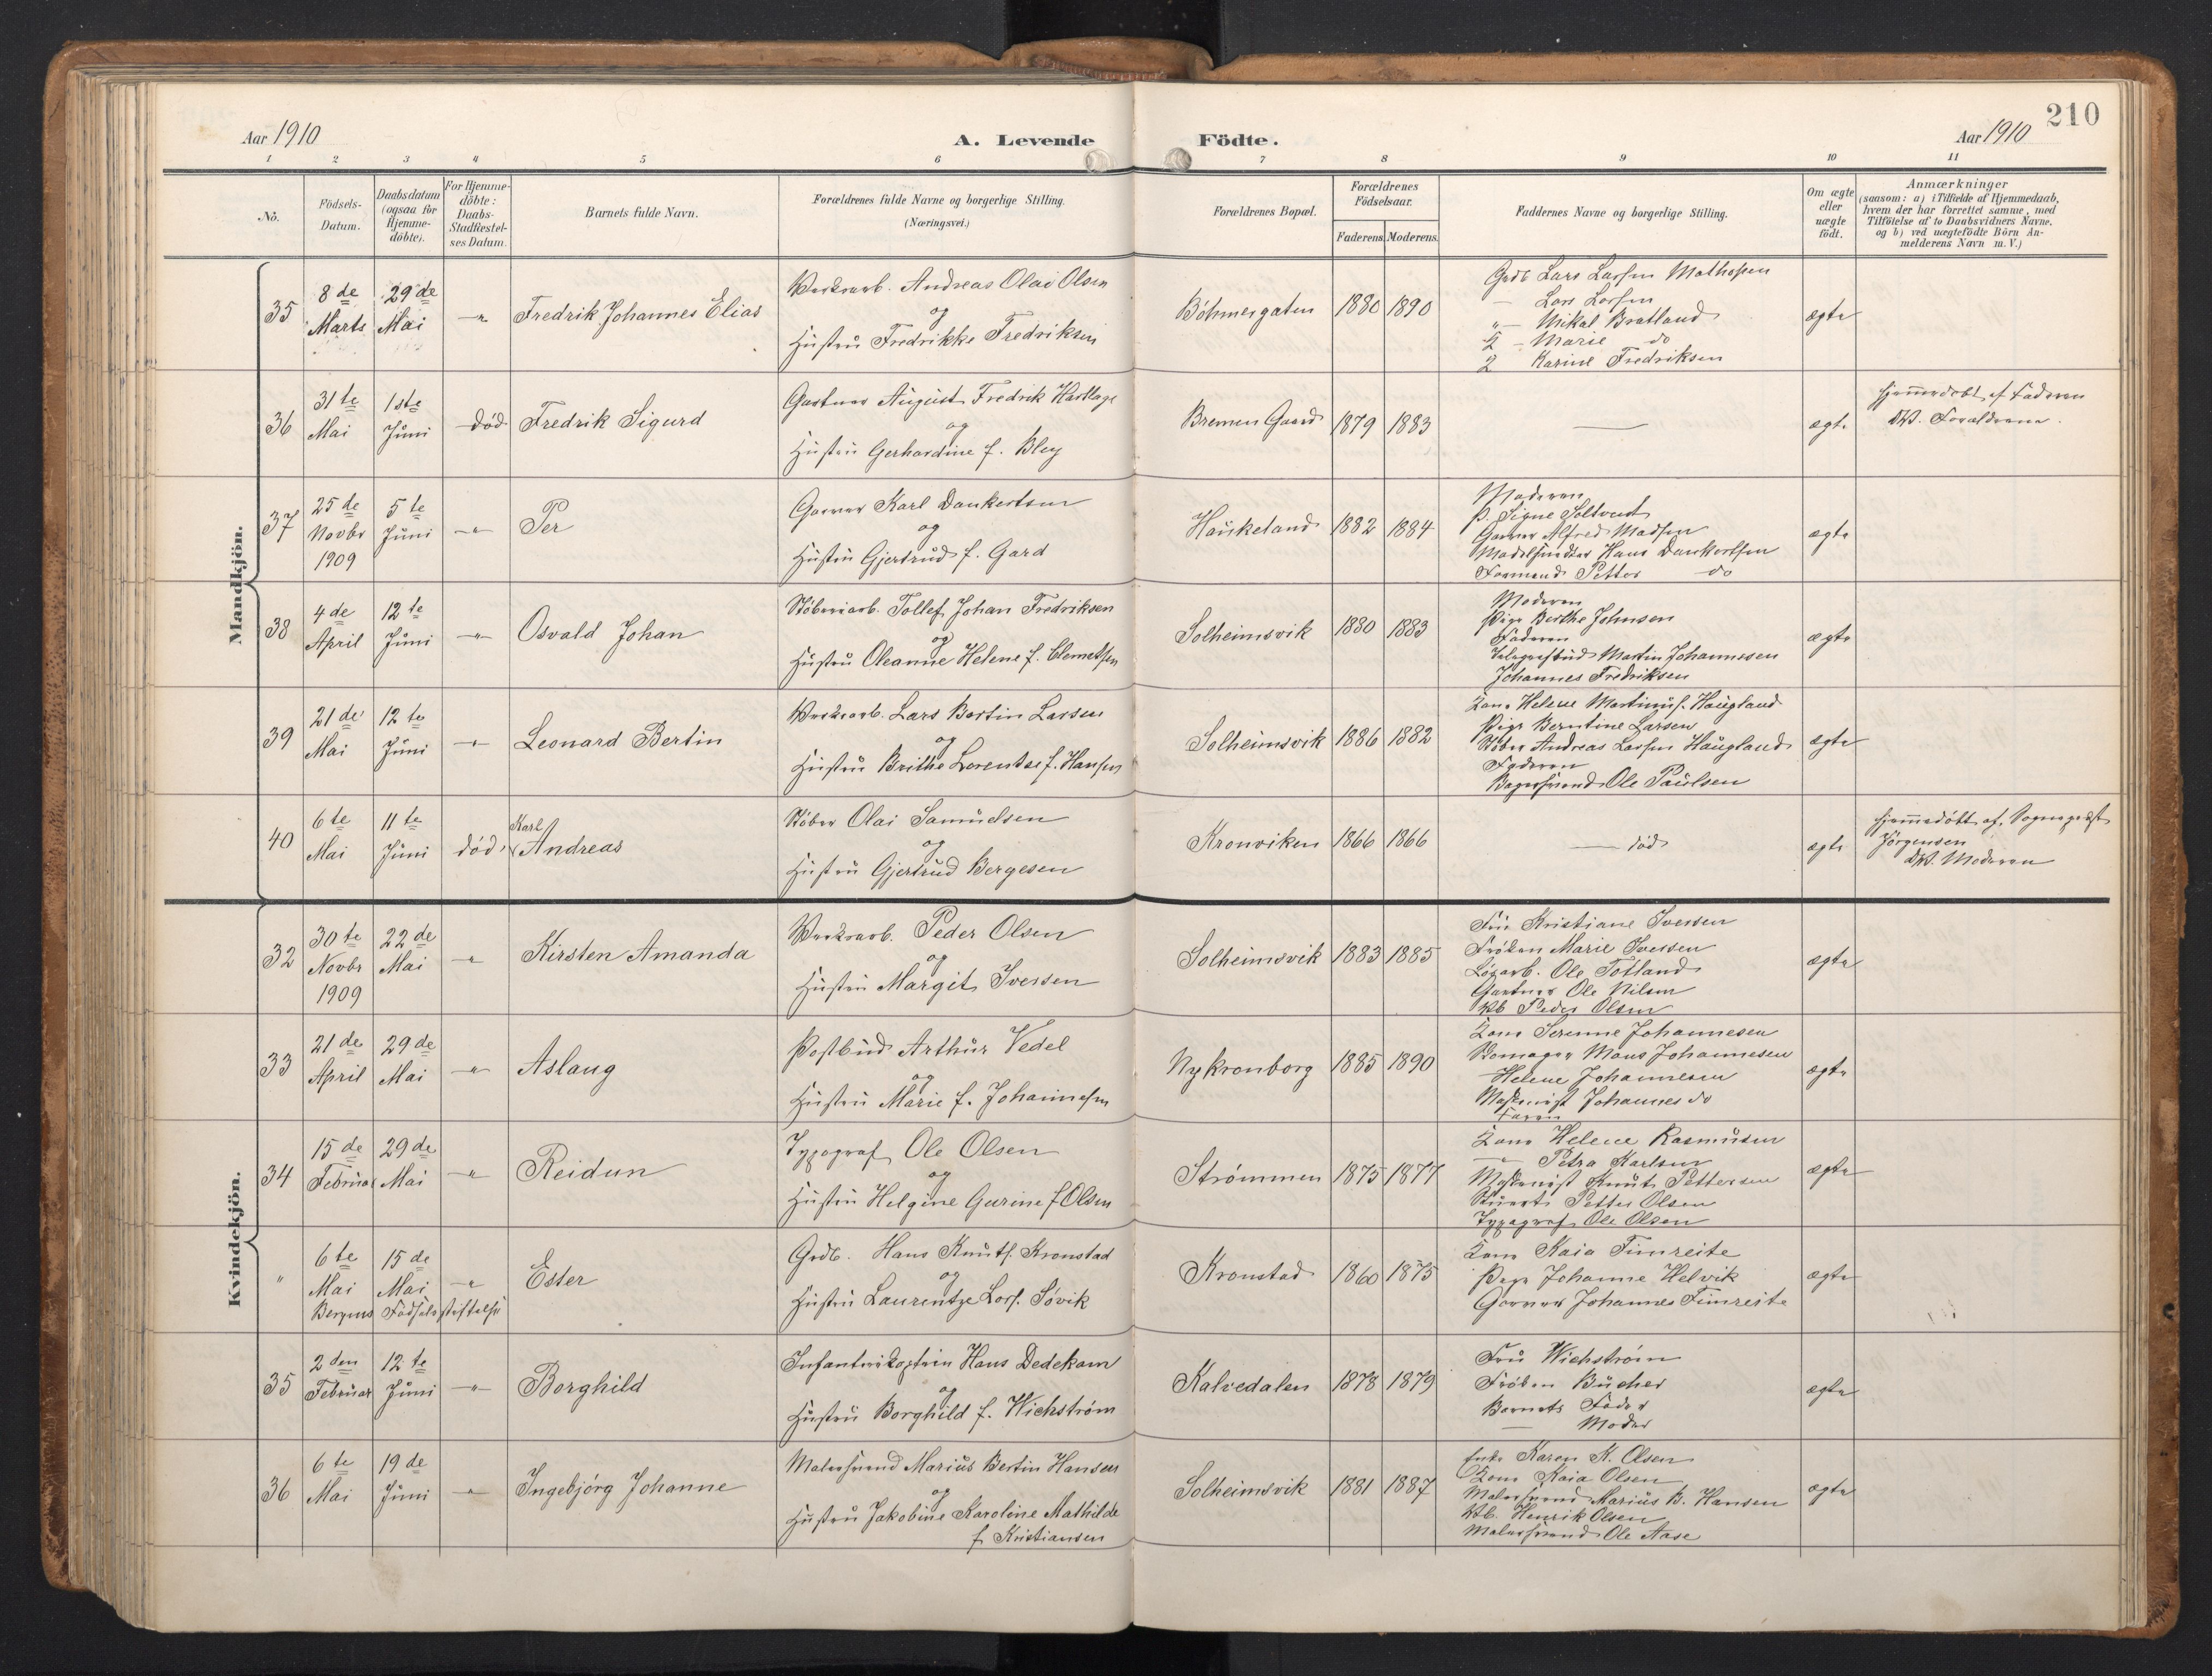 210
Aar 1910
A. Levende
Födte.
Aar 1910
1 2 3 4 5 6 7 8 9 10 11
No.
Födsels-Datum.
Daabsdatum (ogsaa för Hjemme-döbte).
For Hjemme-döbte: Daabs-Stadfæstel-ses Datum.
Barnets fulde Navn.
Forældrenes fulde Navne og borgerlige Stilling. (Næringsvei.)
Forældrenes Bopæl.
Forældrenes Födselsaar.
Faderens. Moderens.
Faddernes Navne og borgerlige Stilling.
Om ægte eller uægte födt.
Anmærkninger
(saasom: a) i Tilfælde af Hjemmedaab, hvem der har forrettet samme, med Tilföielse af to Daabsvidners Navne. og b) ved uægtefödte Börn An-melderens Navn m.V.)
Mandkjön.
35
8de Marts
29de Mai
-"-
Fredrik Johannes Elias
Værksarb. Andreas Olai Olsen
og
Hustru Fredrikke Fredriksen
Böhmergaten
1880 1890
Grdb Lars Larsen Mathopen
— Lars Larsen
"— Mikal Bratland
K - Marie do
K Karine Fredriksen
ægte
36
31te Mai
1ste Juni
død
Fredrik Sigurd
Gartner August Fredrik Hartlage
og
Hustru Gerhardine f. Bley
Bremen Gaard
1879 1883
—
ægte
Hjemmedøbt af Faderen
DV. Forældrene.
37
25de Novbr 1909
5te Juni
-"-
Per
Garver Karl Dankertsen
og
Hustru Gjertrud f. Gard
Haukeland
1882 1884
Moderen
p. Signe Soltvedt
Garver Alfred Madsen
Modelsnedker Hans Dankertsen
Formand Petter do
ægte
38
4de April
12te Juni
-"-
Osvald Johan
Støberiarb. Tollef Johan Fredriksen
og
Hustru Oleanne Helene f. Clemetsen
Solheimsvik
1880 1883
Moderen
Pige Berthe Johnsen
Faderen
Telegrafbud Martin Johannesen
Johannes Fredriksen
ægte
39
21de Mai
12te Juni
-"-
Leonard Bertin
Værksarb. Lars Bertin Larsen
og
Hustru Brithe Lorentse f. Hansen
Solheimsvik
1886 1882
Kone Helene Martinus. Haugland
Pige Berntine Larsen
Støber Andreas Larsen Haugland
Faderen
Bagersvend Ole Paulsen
ægte
40
6te Mai
11te Juni
død
Karl Andreas
Støber Olai Samuelsen
og
Hustru Gjertrud Bergesen
Kronviken
1866 1866
— død
ægte
Hjemmedøbt af Sognepræst
Jörgensen
DV. Moderen
Kvindekjön.
32
30te Novbr 1909
22de Mai
-"-
Kirsten Amanda
Værksarb. Peder Olsen
og
Hustru Margit Iversen
Solheimsvik
1883 1885
Fru Kristiane Iversen
Frøken Marie Iversen
Løsarb. Ole Totland
Gartner Ole Nilsen
Vkb Peder Olsen
ægte
33
21de April
29de Mai
-"-
Aslaug
Postbud Arthur Vedel
og
Hustru Marie f. Johannesen
Ny Kronborg
1885 1890
Kone Serenne Johannesen
Mons Johannesen
Helene Johannesen
Maskinist Johannes do
Faren
ægte
34
15de Februar
29de Mai
-"-
Reidun
Typograf Ole Olsen
og
Hustru Helgine Gurine f Olsen
Strømmen
1875 1877
Kone Helene Rasmusen
—"— Petra Karlsen
Maskinist Knut Pettersen
Stuert Petter Olsen
Typograf Ole Olsen
ægte
"
6te Mai
15de Mai
-"-
Bergens Fødselsstiftelse
Ester
Grdb. Hans Knuts. Kronstad
og
Hustru Laurentze Lars. Søvik
Kronstad
1860 1875
Kone Kaia Timreite
Pige Johanne Helvik
Garver Johannes Timreite
ægte
35
2den Februar
12te Juni
-"-
Borghild
Infanterikaptein Hans Dedekam
og
Hustru Borghild f. Wichstrøm
Kalvedalen
1878 1879
Fru Wichstrøm
Frøken Bücher
Barnets Fader
— Moder
ægte
36
6te Mai
19de Juni
-"-
Ingebjørg Johanne
Malersvend Marius Bertin Hansen
og
Hustru Jakobine Karoline Mathilde
f. Kristiansen
Solheimsvik
1881 1887
Enke Karen K. Olsen
Kone Kaia Olsen
Malersvend Marius B. Hansen
Vkb. Henrik Olsen
Malersvend Ole Aase
ægte